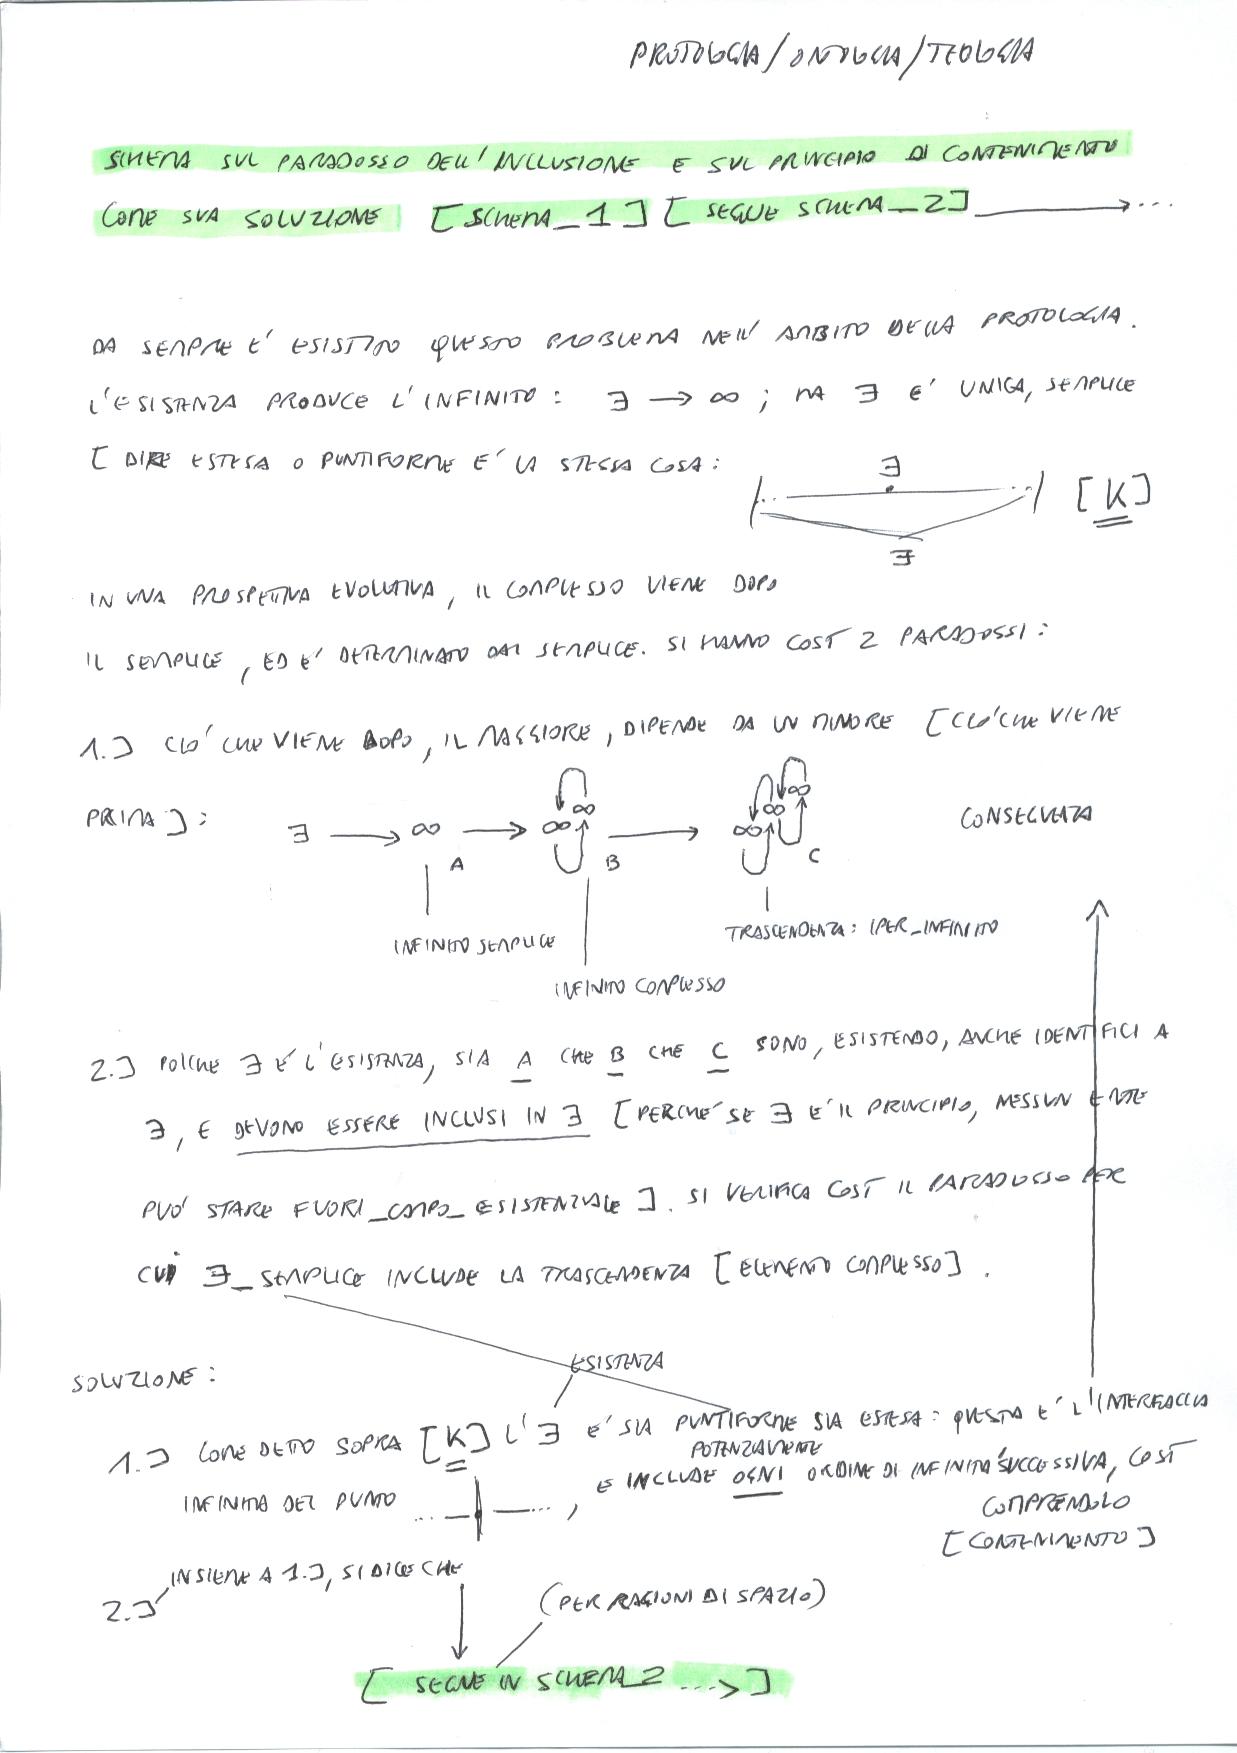 PROTOLOGIA/ONTOLOGIA/TEOLOGIA
SCHEMA SUL PARADOSSO DELL'INCLUSIONE E SUL PRINCIPIO DI CONTENIMENTO
COME SUA SOLUZIONE [SCHEMA_1] [SEGUE SCHEMA_2] ⟶ ...
DA SEMPRE E' ESISTITO QUESTO PROBLEMA NELL'AMBITO DELLA PROTOLOGIA.
L'ESISTENZA PRODUCE L'INFINITO: ∃ → ∞ ; MA ∃ E' UNICA, SEMPLICE
[DIRE ESTESA O PUNTIFORME E' LA STESSA COSA:
∃
[K]
∃
IN UNA PROSPETTIVA EVOLUTIVA, IL COMPLESSO VIENE DOPO
IL SEMPLICE, ED E' DETERMINATO DAL SEMPLICE. SI HANNO COSÌ 2 PARADOSSI:
1.] CIO' CHE VIENE DOPO, IL MAGGIORE, DIPENDE DA UN MINORE [CIO' CHE VIENE
PRIMA]: ∃ → ∞ → ∞ ∞ → ∞ ∞ ∞ CONSEGUENZA
A B C
INFINITO SEMPLICE
TRASCENDENZA: IPER_INFINITO
INFINITO COMPLESSO
2.] POICHE ∃ E' L'ESISTENZA, SIA A CHE B CHE C SONO, ESISTENDO, ANCHE IDENTIFICI A
∃, E DEVONO ESSERE INCLUSI IN ∃ [PERCHE' SE ∃ E' IL PRINCIPIO, NESSUN ENTE
PUO' STARE FUORI_CAMPO_ESISTENZIALE]. SI VERIFICA COSÌ IL PARADOSSO PER
CUI ∃_SEMPLICE INCLUDE LA TRASCENDENZA [ELEMENTO COMPLESSO].
SOLUZIONE:
ESISTENZA
1.] COME DETTO SOPRA [K] L'∃ E' SIA PUNTIFORME SIA ESTESA: QUESTA E' L'INTERFACCIA
INFINITA DEL PUNTO ... ... , E INCLUDE POTENZIALMENTE OGNI ORDINE DI INFINITÀ SUCCESSIVA, COSÌ
COMPRENDOLO
[CONTENIMENTO]
2.] INSIEME A 1.], SI DICE CHE
(PER RAGIONI DI SPAZIO)
[SEGUE IN SCHEMA_2 ...>]